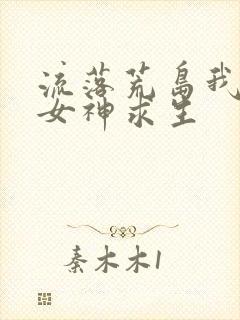 流落荒岛我
女神求生
秦木木1